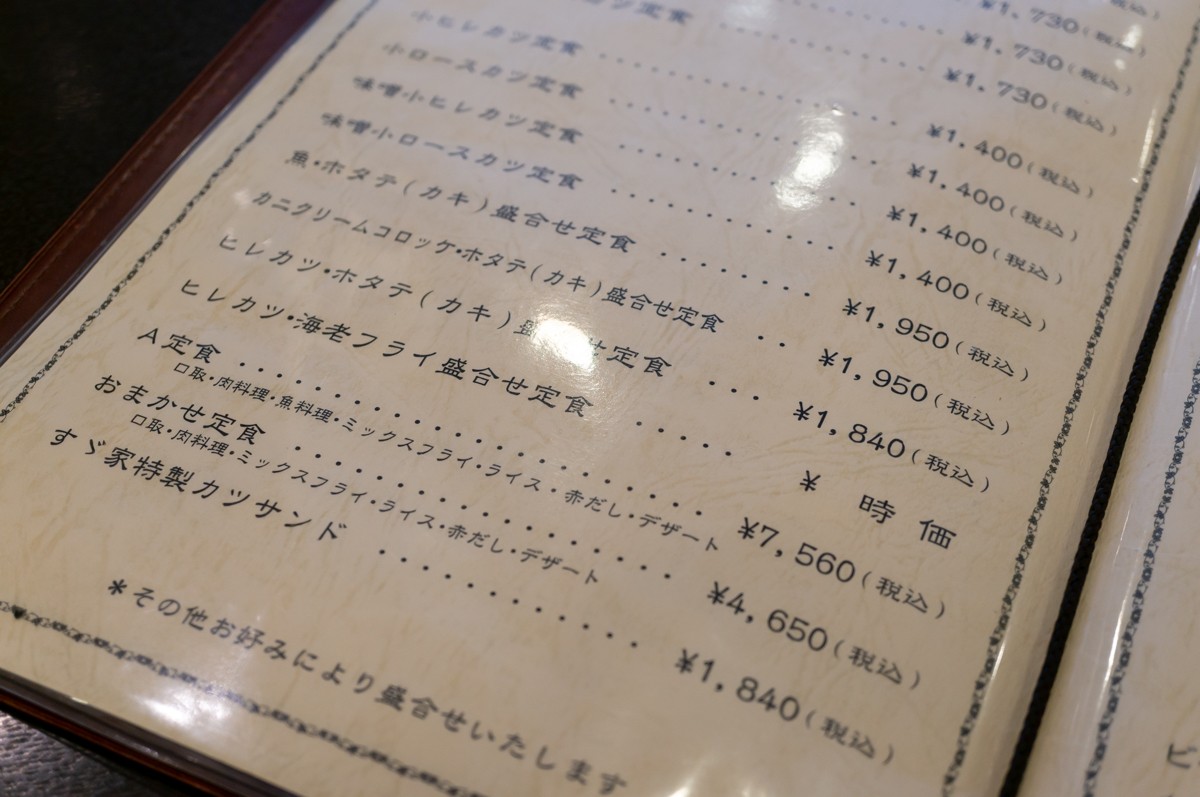 ¥1,730(税込)
¥1,730(税込)
カツ定食 ¥1,730(税込)
小ヒレカツ定食 ¥1,400(税込)
小ロースカツ定食 ¥1,400(税込)
味噌小ヒレカツ定食 ¥1,400(税込)
味噌小ロースカツ定食 ¥1,400(税込)
魚・ホタテ(カキ)盛合せ定食 ¥1,950(税込)
カニクリームコロッケ・ホタテ(カキ)盛合せ定食 ¥1,950(税込)
ヒレカツ・ホタテ(カキ)盛合せ定食 ¥1,840(税込)
ヒレカツ・海老フライ盛合せ定食 ¥ 時価
A定食 ¥7,560(税込)
口取・肉料理・魚料理・ミックスフライ・ライス・赤だし・デザート
おまかせ定食 ¥4,650(税込)
口取・肉料理・ミックスフライ・ライス・赤だし・デザート
すゞ家特製カツサンド ¥1,840(税込)
*その他お好みにより盛合せいたします
ビ